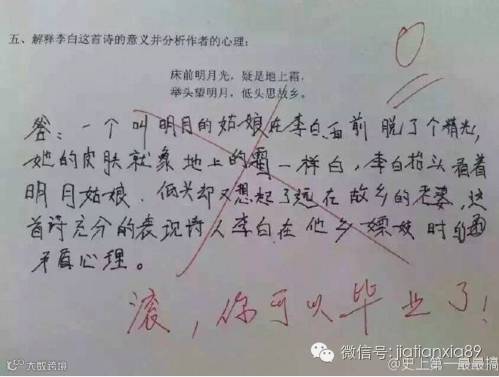 五、解释李白这首诗的意义并分析作者的心理：
0
床前明月光，疑是地上霜，
举头望明月，低头思故乡。
答：一个叫明月的姑娘在李白面前脱了个精光，
她的皮肤就象地上的霜一样白，李白抬头看着
明月姑娘，低头却又想起了远在故乡的老婆，这
首诗充分的表现诗人李白在他乡嫖妓时的
矛盾心理。
滚，你可以毕业了！
微信号: jiatianxia89
大数跨境
@史上第一最最搞